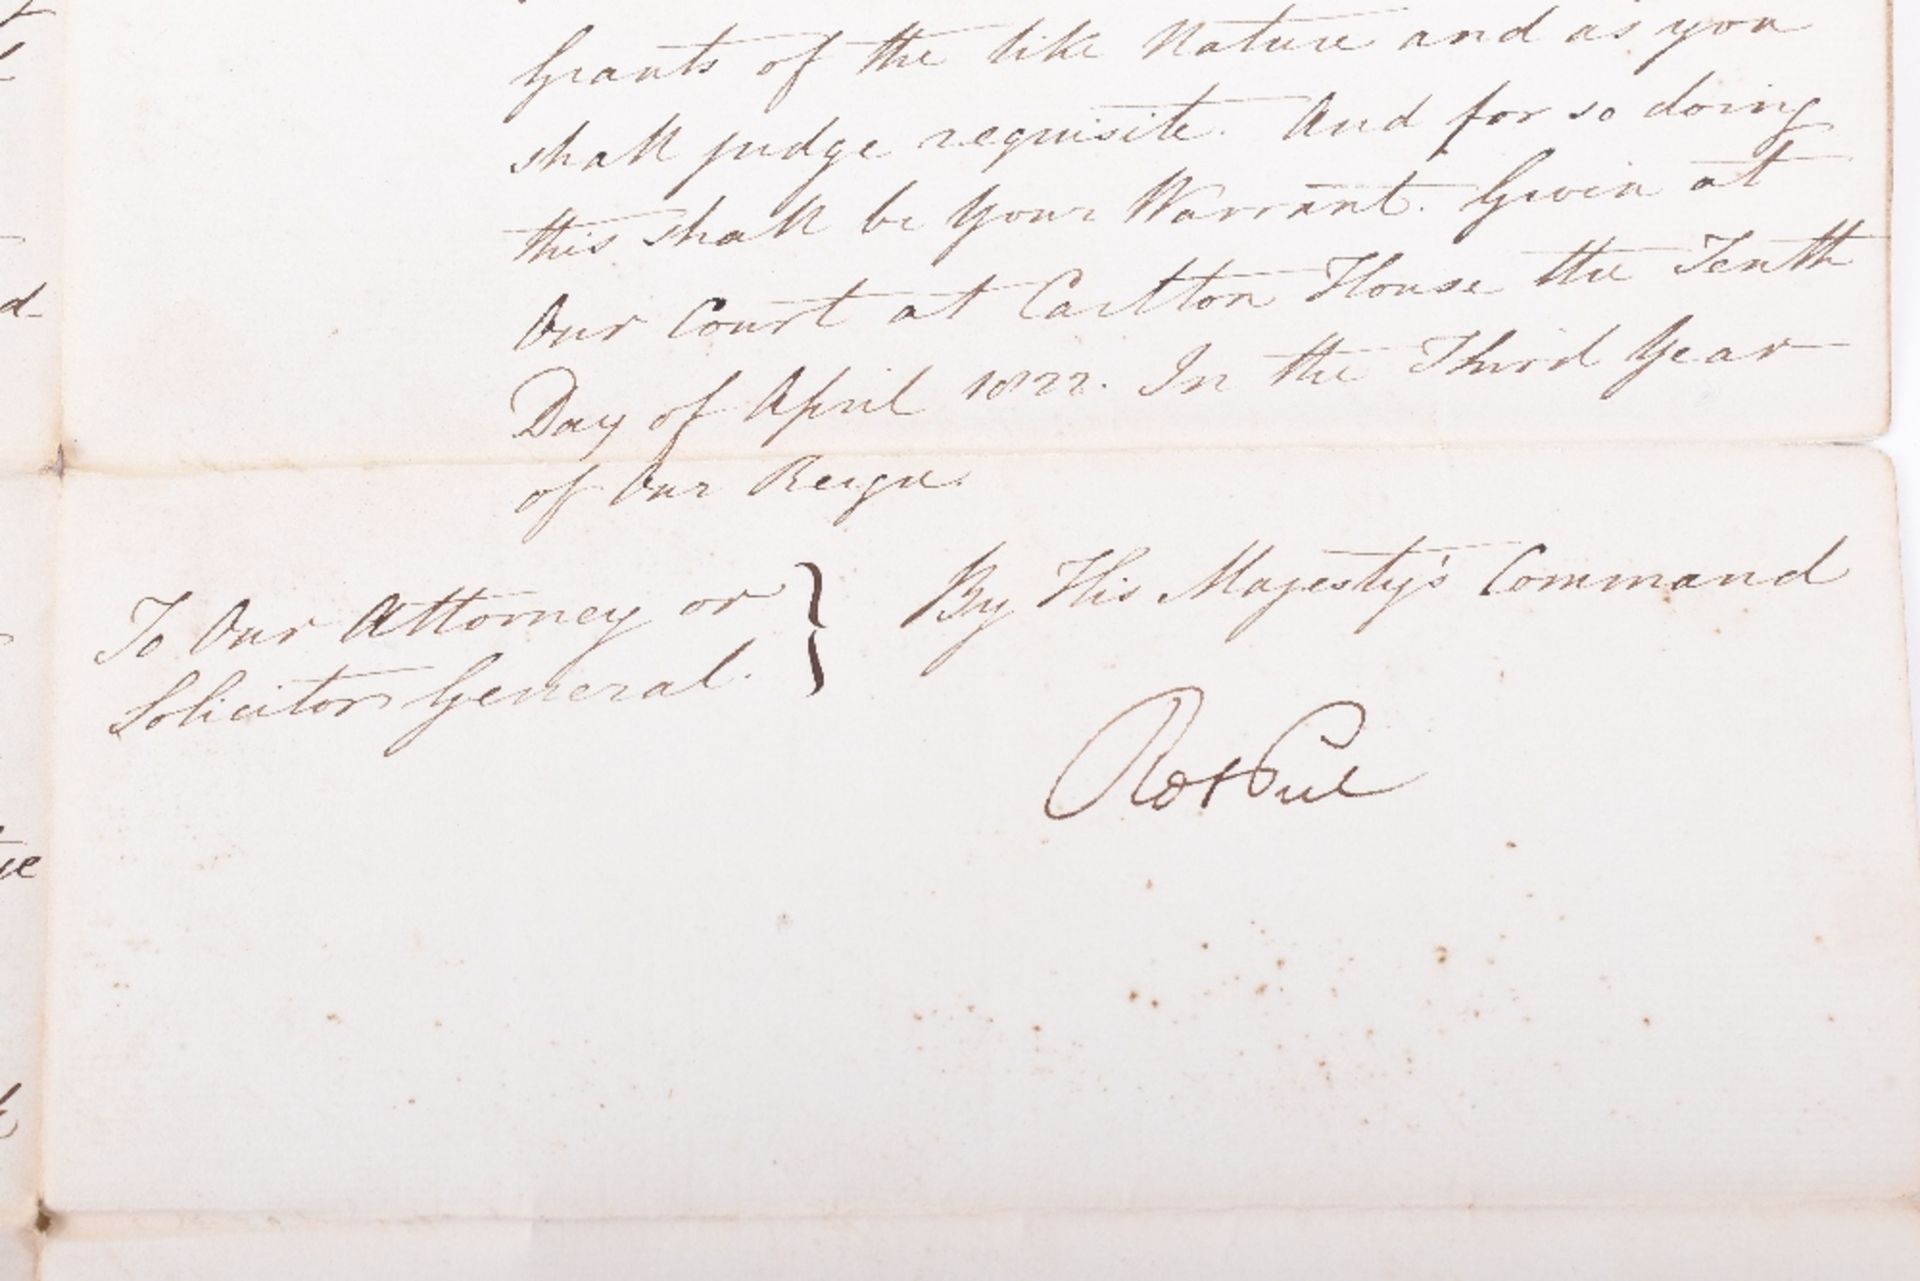 Grants of the like Nature and as you
shall judge requisite. And for so doing
this shall be Your Warrant. Given at
Our Court at Carlton House the Tenth
Day of April 1822. In the Third Year
of Our Reign.
To Our Attorney or
Solicitor General.
By His Majesty's Command
Robt Peel